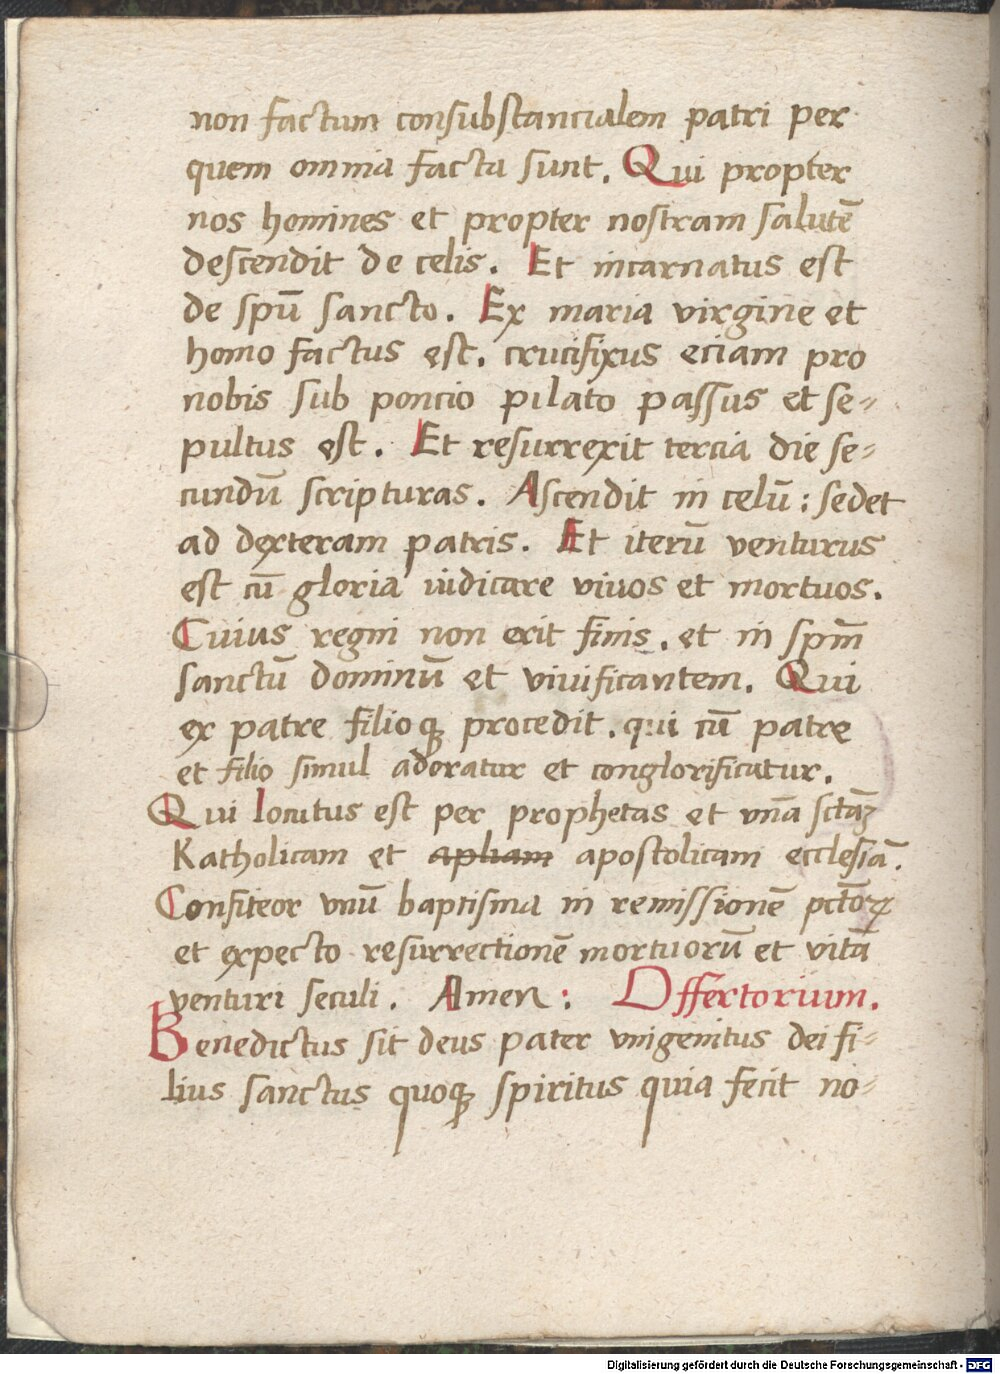 non factum consubstancialem patri per
quem omnia facta sunt. Qui propter
nos homines et propter nostram salutē
descendit de celis. Et incarnatus est
de spū sancto. Ex maria virgine et
homo factus est. crucifixus eciam pro
nobis sub poncio pilato passus et se-
pultus est. Et resurrexit tercia die se-
cundū scripturas. Ascendit in celū: sedet
ad dexteram patris. Et iterū venturus
est cū gloria iudicare viuos et mortuos.
Cuius regni non erit finis. et in spm̄
sanctū dominū et viuificantem. Qui
ex patre filioqꝫ procedit. qui cū patre
et filio simul adoratur et conglorificatur.
Qui locutus est per prophetas et vnā sctāꝫ
Katholicam et apl̄iam apostolicam ecclesiā.
Confiteor vnū baptisma in remissionē pctōꝝ
et expecto resurrectionē mortuorū et vitā
venturi seculi. Amen: Offertorium.
Benedictus sit deus pater vnigenitus dei fi-
lius sanctus quoqꝫ spiritus quia fecit no-
Digitalisierung gefördert durch die Deutsche Forschungsgemeinschaft - DFG